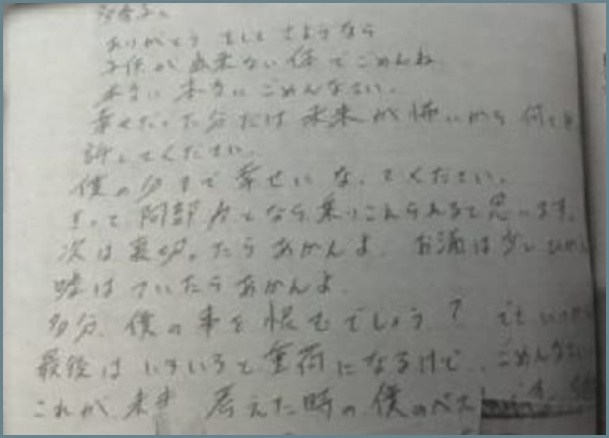 ありがとう そして さようなら
子供が出来ない体でごめんね
本当に本当にごめんなさい。
幸せだった分だけ未来が怖いから 何も
許してください。
僕の分まで幸せになってください。
きっと阿部 となら乗りこえられると思います。
次は裏切ったらあかんよ お酒は少し
嘘はついたらあかんよ
多分、僕の事を恨むでしょう? でもいつか
最後はいろいろと重荷になるけど、ごめんなさい
これが、未来 考えた時の僕のベス